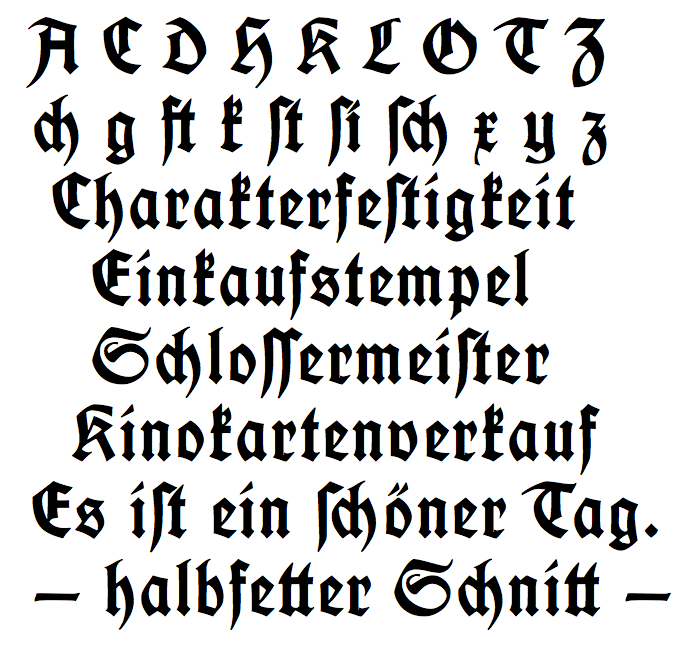 A C D H K L O T Z
ch g ft k ſt ſi ſch x y z
Charakterfeſtigkeit
Einkaufstempel
Schloſſermeiſter
Kinokartenverkauf
Es iſt ein ſchöner Tag.
— halbfetter Schnitt —